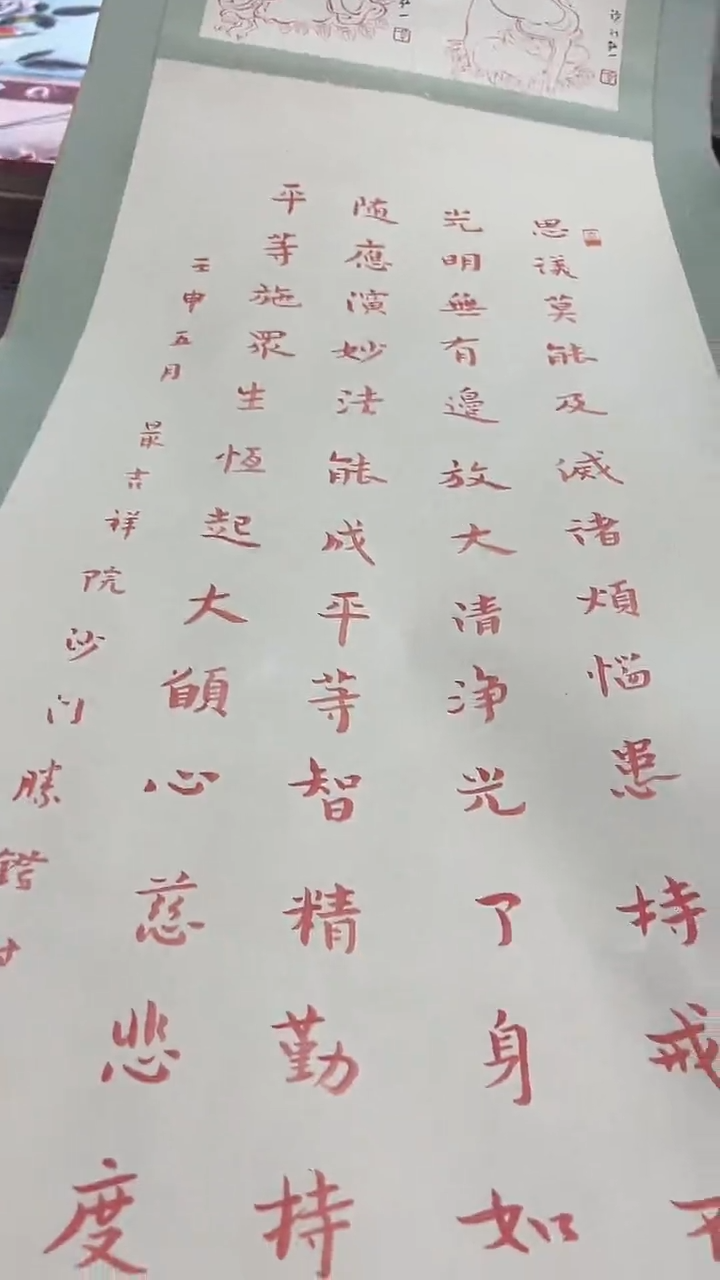 思議莫能及滅諸煩惱患持戒
光明無有邊放大清淨光了身如
随應演妙法能成平等智精勤持
平等施眾生恒起大願心慈悲度
壬申五月 最吉祥院沙门勝鎧